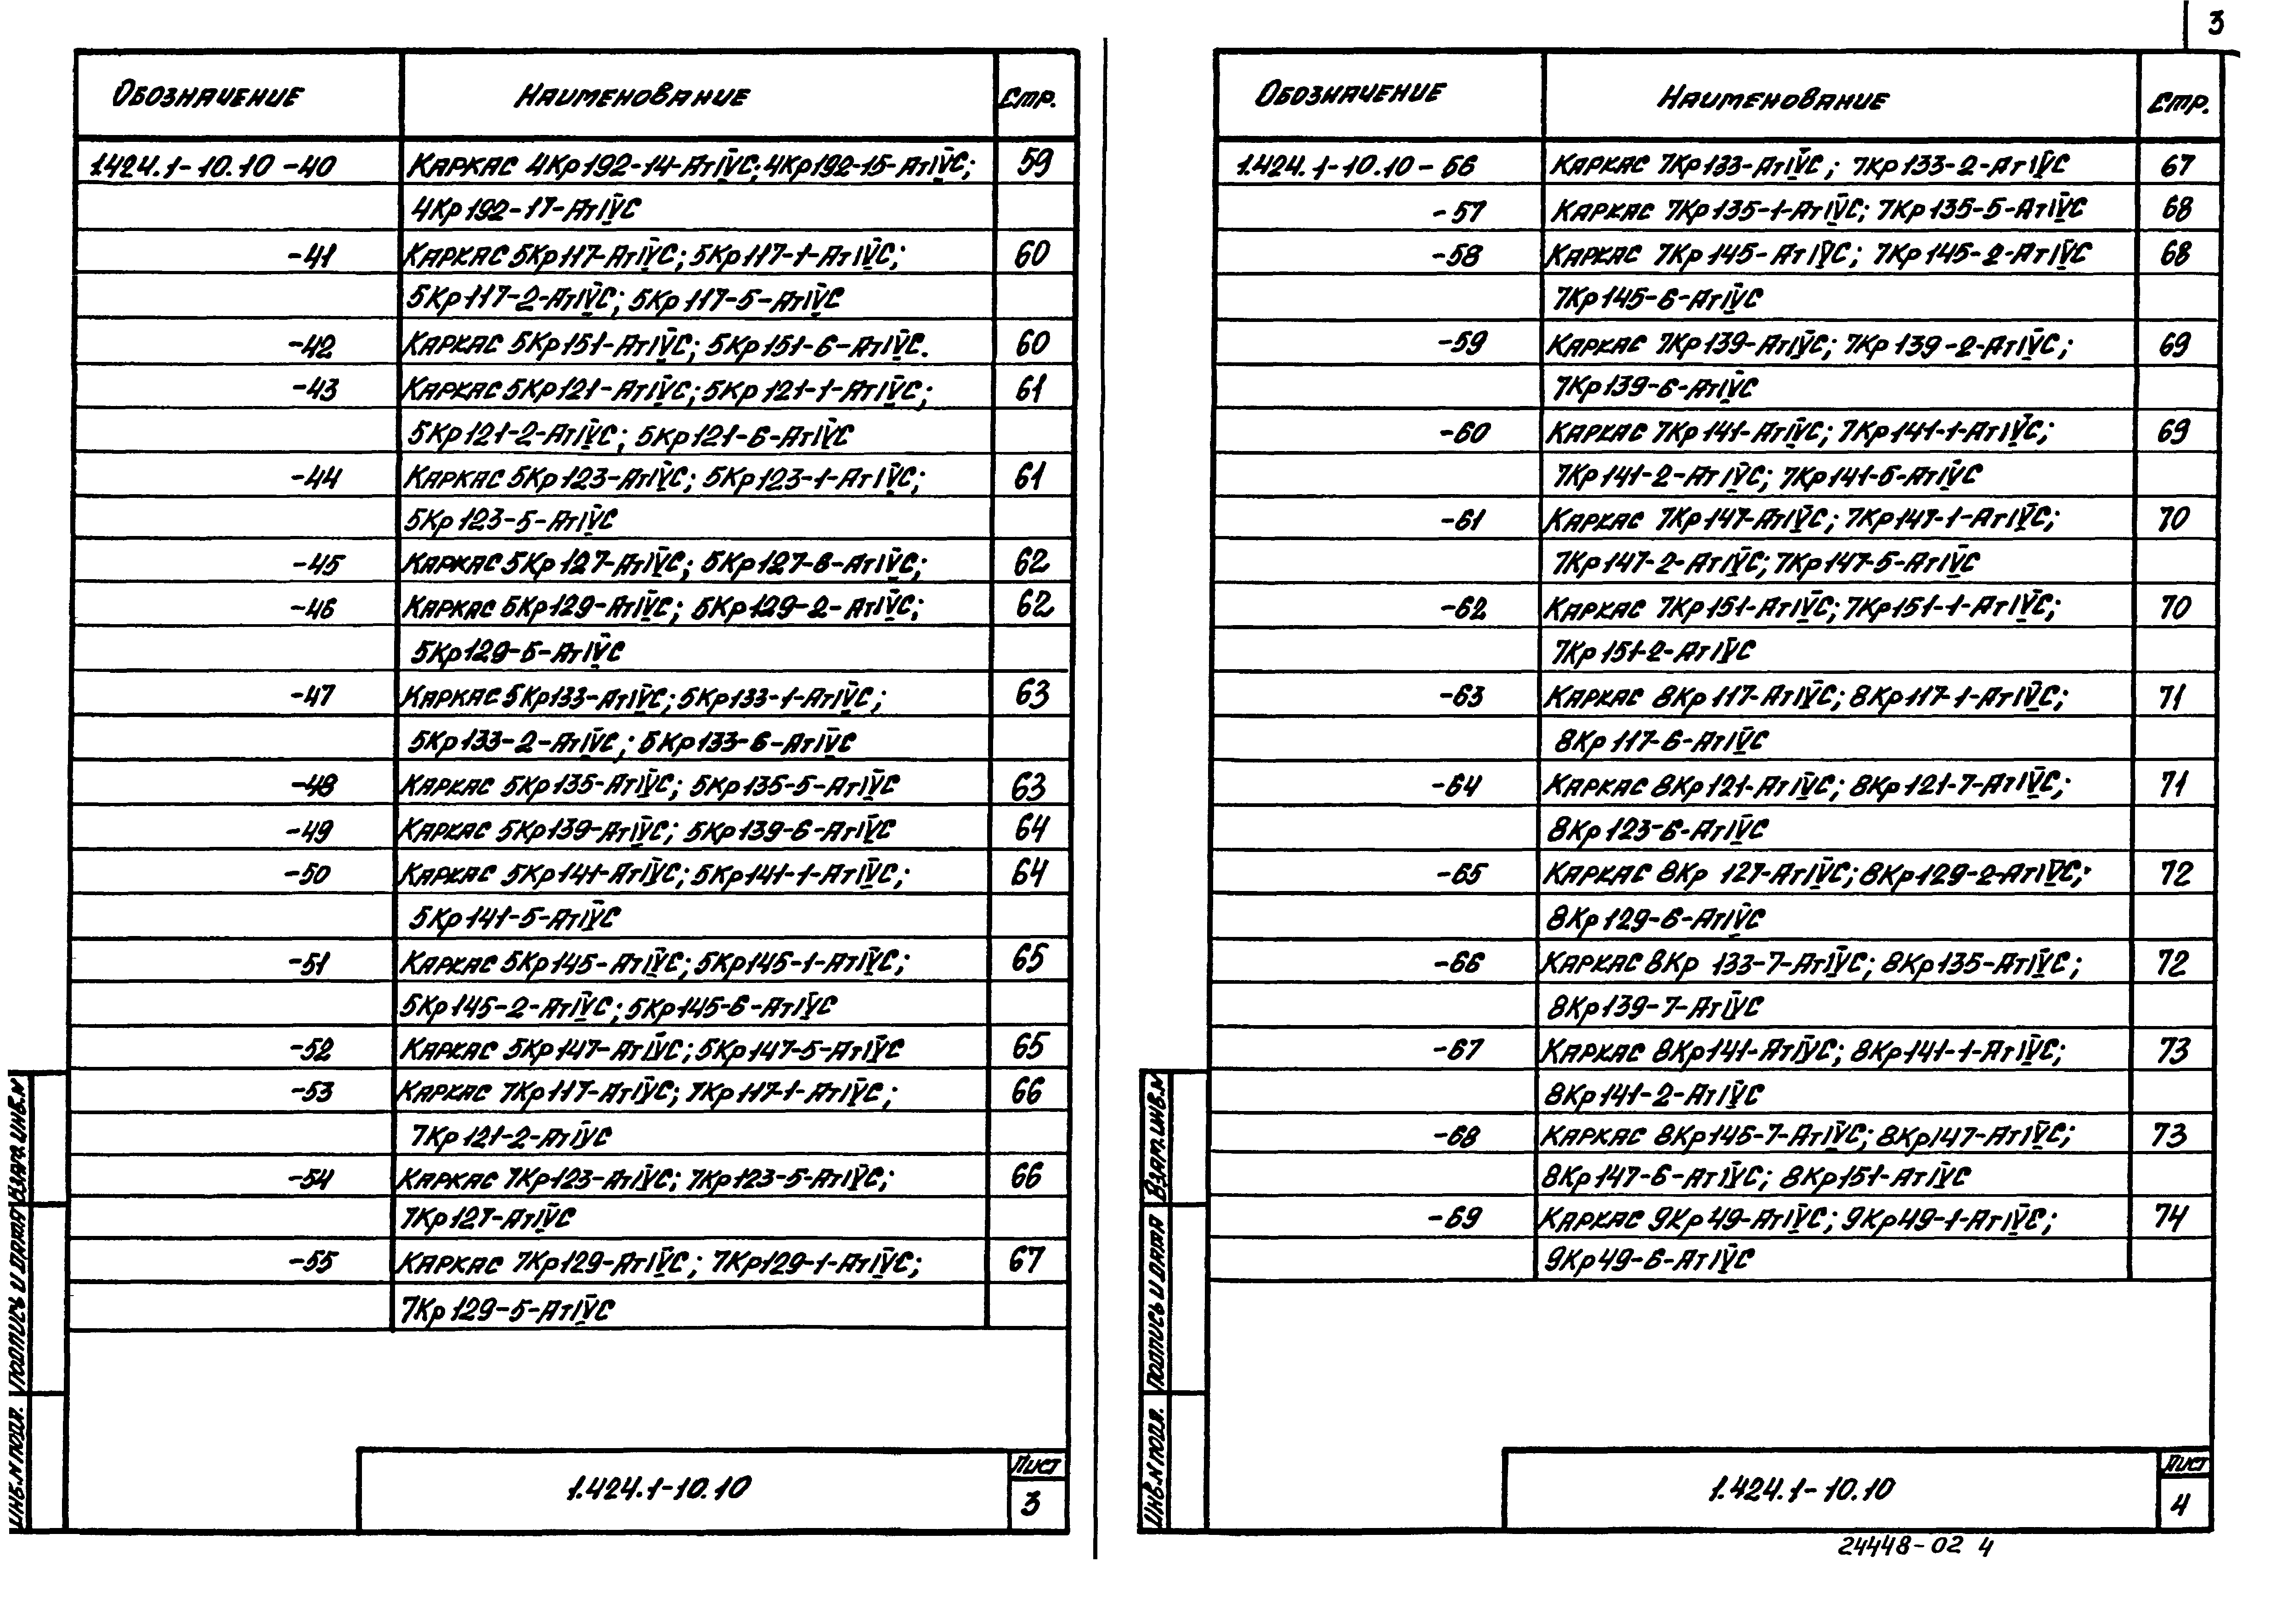 3
Обозначение Наименование Стр.
1.424.1-10.10 -40 Каркас 4Кр192-14-АтIVС; 4Кр192-15-АтIVС; 59
4Кр192-17-АтIVС
-41 Каркас 5Кр117-АтIVС; 5Кр117-1-АтIVС; 60
5Кр117-2-АтIVС; 5Кр117-5-АтIVС
-42 Каркас 5Кр151-АтIVС; 5Кр151-6-АтIVС. 60
-43 Каркас 5Кр121-АтIVС; 5Кр121-1-АтIVС; 61
5Кр121-2-АтIVС; 5Кр121-6-АтIVС
-44 Каркас 5Кр123-АтIVС; 5Кр123-1-АтIVС; 61
5Кр123-5-АтIVС
-45 Каркас 5Кр127-АтIVС; 5Кр127-6-АтIVС; 62
-46 Каркас 5Кр129-АтIVС; 5Кр129-2-АтIVС; 62
5Кр129-5-АтIVС
-47 Каркас 5Кр133-АтIVС; 5Кр133-1-АтIVС; 63
5Кр133-2-АтIVС; 5Кр133-6-АтIVС
-48 Каркас 5Кр135-АтIVС; 5Кр135-5-АтIVС 63
-49 Каркас 5Кр139-АтIVС; 5Кр139-6-АтIVС 64
-50 Каркас 5Кр141-АтIVС; 5Кр141-1-АтIVС; 64
5Кр141-5-АтIVС
-51 Каркас 5Кр145-АтIVС; 5Кр145-1-АтIVС; 65
5Кр145-2-АтIVС; 5Кр145-6-АтIVС
-52 Каркас 5Кр147-АтIVС; 5Кр147-5-АтIVС 65
-53 Каркас 7Кр117-АтIVС; 7Кр117-1-АтIVС; 66
7Кр121-2-АтIVС
-54 Каркас 7Кр123-АтIVС; 7Кр123-5-АтIVС; 66
7Кр127-АтIVС
-55 Каркас 7Кр129-АтIVС; 7Кр129-1-АтIVС; 67
7Кр129-5-АтIVС
1.424.1-10.10
Лист
3
Инв.N подл. Подпись и дата Взам.инв.N
Обозначение Наименование Стр.
1.424.1-10.10-56 Каркас 7Кр133-АтIVС; 7Кр133-2-АтIVС 67
-57 Каркас 7Кр135-1-АтIVС; 7Кр135-5-АтIVС 68
-58 Каркас 7Кр145-АтIVС; 7Кр145-2-АтIVС 68
7Кр145-6-АтIVС
-59 Каркас 7Кр139-АтIVС; 7Кр139-2-АтIVС; 69
7Кр139-6-АтIVС
-60 Каркас 7Кр141-АтIVС; 7Кр141-1-АтIVС; 69
7Кр141-2-АтIVС; 7Кр141-5-АтIVС
-61 Каркас 7Кр147-АтIVС; 7Кр147-1-АтIVС; 70
7Кр147-2-АтIVС; 7Кр147-5-АтIVС
-62 Каркас 7Кр151-АтIVС; 7Кр151-1-АтIVС; 70
7Кр151-2-АтIVС
-63 Каркас 8Кр117-АтIVС; 8Кр117-1-АтIVС; 71
8Кр117-6-АтIVС
-64 Каркас 8Кр121-АтIVС; 8Кр121-7-АтIVС; 71
8Кр123-6-АтIVС
-65 Каркас 8Кр 127-АтIVС; 8Кр129-2-АтIVС; 72
8Кр129-6-АтIVС
-66 Каркас 8Кр 133-7-АтIVС; 8Кр135-АтIVС; 72
8Кр139-7-АтIVС
-67 Каркас 8Кр141-АтIVС; 8Кр141-1-АтIVС; 73
8Кр141-2-АтIVС
-68 Каркас 8Кр145-7-АтIVС; 8Кр147-АтIVС; 73
8Кр147-6-АтIVС; 8Кр151-АтIVС
-69 Каркас 9Кр49-АтIVС; 9Кр49-1-АтIVС; 74
9Кр49-6-АтIVС
1.424.1-10.10
Лист
4
Инв.N подл. Подпись и дата Взам.инв.N
24448-02 4